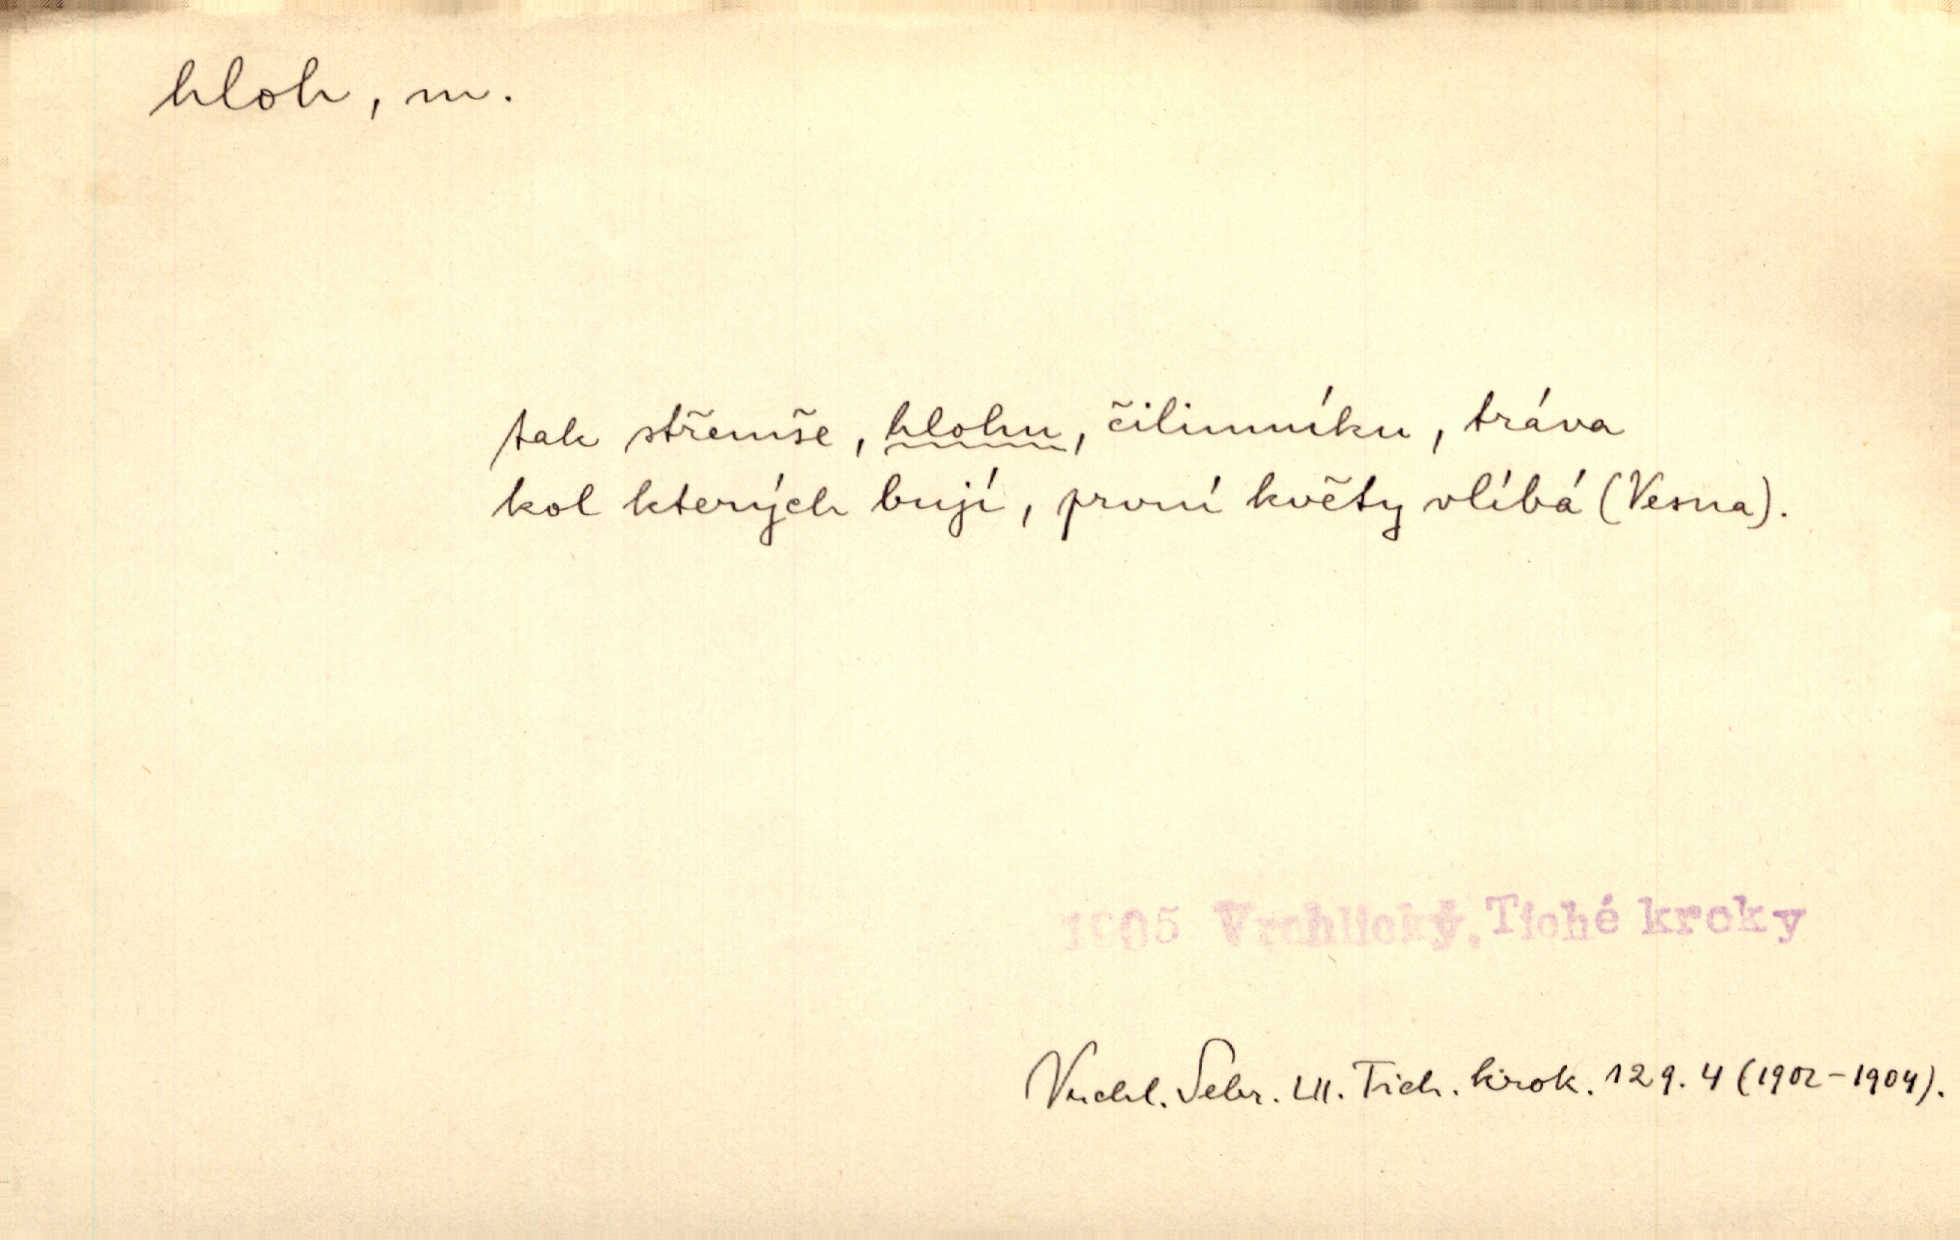 hloh, m.
tak střemše, hlohu, čilimníku, tráva
kol kterých bují, první květy vlíbá (Vesna).
1905 Vrchlický, Tiché kroky
Vrchl. Sebr. LII. Tich. krok. 129. 4 (1902-1904).